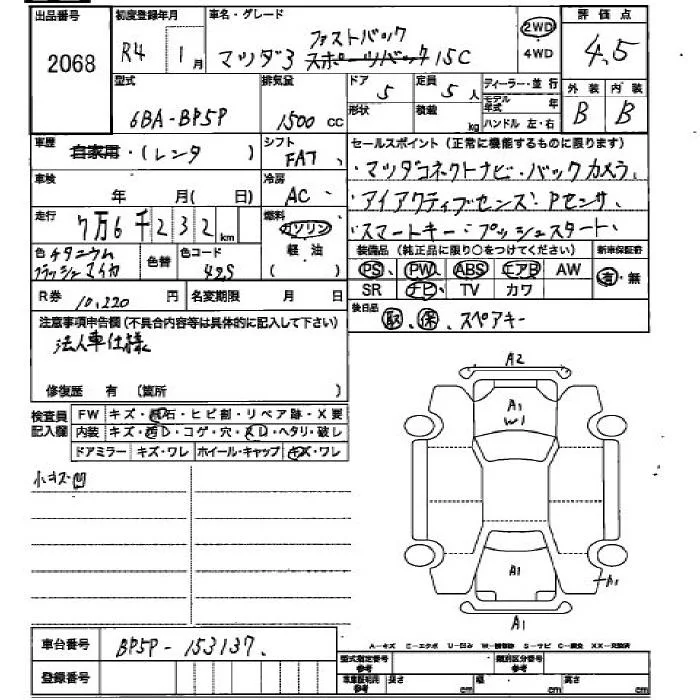 出品番号 初度登録年月 車名・グレード 評価点
2068 R4 1月 マツダ3 ファストバック スポーツバック 15C 2WD 4WD 4.5
型式 排気量 ドア 定員 ディーラー・並行 外装 内装
6BA-BP5P 1500cc 5 5人 モデル年式 年 B B
形状 積載 kg ハンドル 左・右
車歴 自家用・(レンタ ) シフト FAT セールスポイント (正常に機能するものに限ります)
車検 年 月( 日) 冷房 AC ・マツダコネクトナビ・バックカメラ、
走行 7万6千232km 燃料 ガソリン 軽油 ( ) ・アイアクティブセンス・Pセンサ
・スマートキー・プッシュスタート、
色 チタニウムフラッシュマイカ 色替 色コード 42S 装備品 (純正品に限り○をつけてください) 新車保証書
PS PW ABS エアB AW 有・無
SR ナビ TV カワ
R券 10,220円 名変期限 月 日 後日品 取、保、スペアキー
注意事項申告欄 (不具合内容等は具体的に記入して下さい)
法人車仕様
修復歴 有 (箇所 )
検査員記入欄 FW キズ・飛石・ヒビ割・リペア跡・X要
内装 キズ・・コゲ・穴・・ヘタリ・破レ
ドアミラー キズ・ワレ ホイール・キャップ キズ・ワレ
小キズ凹
A2
A1
W1
A1
A1
A1
車台番号 BP5P-153137
登録番号
A-キズ E-エクボ U-凹み W-補修跡 S-サビ C-腐食 XX-交換済
型式指定番号 参考 類別区分番号 参考
車庫証明用 参考 長さ cm 幅 cm 高さ cm